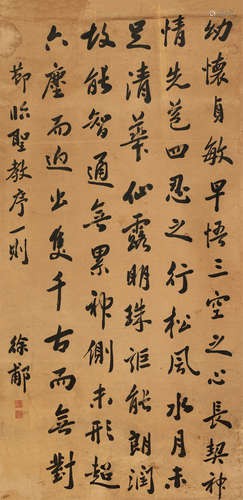 幼懷貞敏早悟三空之心長契神
情先苞四忍之行松風水月未
足清華仙露明珠詎能朗潤
故能智通無累神測未形超
六塵而迥出隻千古而無對
節臨聖教序一則 徐郙